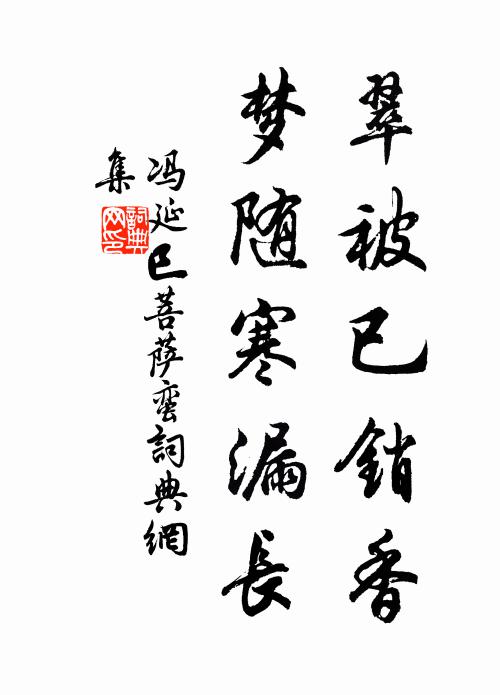 翠被已銷香
梦随寒漏長
冯延巳菩萨蛮詞典網
集
詞典
网印